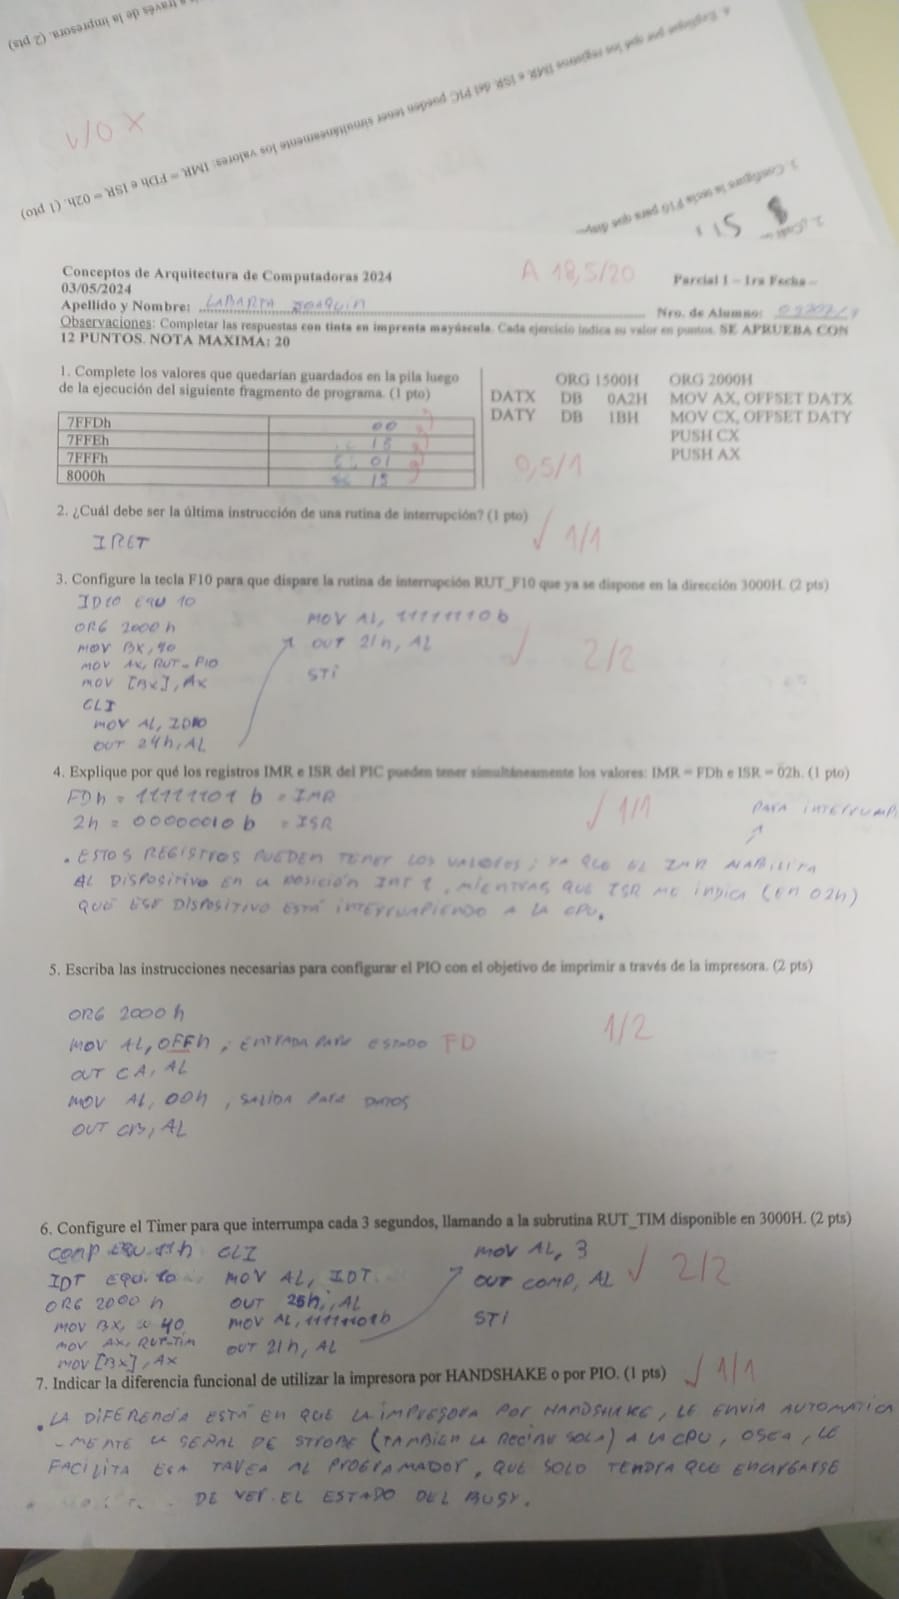 a través de la impresora. (2 pts)
4. Explique por qué los registros IMR e ISR del PIC pueden tener simultáneamente los valores: IMR = FDh e ISR = 02h. (1 pto)
3. Configure la tecla F10 para que
2. ¿Cuál
Conceptos de Arquitectura de Computadoras 2024
A 18,5/20
Parcial 1 – 1ra Fecha –
03/05/2024
Apellido y Nombre: LABARTA JOAQUIN
Nro. de Alumno:
Observaciones: Completar las respuestas con tinta en imprenta mayúscula. Cada ejercicio indica su valor en puntos. SE APRUEBA CON
12 PUNTOS. NOTA MAXIMA: 20
1. Complete los valores que quedarían guardados en la pila luego
de la ejecución del siguiente fragmento de programa. (1 pto)
7FFDh 00
7FFEh 15
7FFFh 01
8000h 15
ORG 1500H ORG 2000H
DATX DB 0A2H MOV AX, OFFSET DATX
DATY DB 1BH MOV CX, OFFSET DATY
PUSH CX
PUSH AX
0,5/1
2. ¿Cuál debe ser la última instrucción de una rutina de interrupción? (1 pto)
IRET
1/1
3. Configure la tecla F10 para que dispare la rutina de interrupción RUT_F10 que ya se dispone en la dirección 3000H. (2 pts)
ID10 EQU 10
ORG 2000h
MOV BX, 40
MOV AX, RUT_F10
MOV [BX], AX
CLI
MOV AL, ID10
OUT 24h, AL
MOV AL, 11111110b
OUT 21h, AL
STI
2/2
4. Explique por qué los registros IMR e ISR del PIC pueden tener simultáneamente los valores: IMR = FDh e ISR = 02h. (1 pto)
FDh = 11111101 b = IMR
2h = 00000010 b = ISR
1/1
PARA INTERRUMP
. ESTOS REGISTROS PUEDEN TENER LOS VALORES, YA QUE EL IMR HABILITA
AL DISPOSITIVO EN LA POSICIÓN INT 1, MIENTRAS QUE ISR ME INDICA (EN 02h)
QUE ESE DISPOSITIVO ESTÁ INTERRUMPIENDO A LA CPU.
5. Escriba las instrucciones necesarias para configurar el PIO con el objetivo de imprimir a través de la impresora. (2 pts)
ORG 2000h
MOV AL, 0FFh ; ENTRADA PARA ESTADO FD
OUT CA, AL
MOV AL, 00h , SALIDA PARA DATOS
OUT CB, AL
1/2
6. Configure el Timer para que interrumpa cada 3 segundos, llamando a la subrutina RUT_TIM disponible en 3000H. (2 pts)
COMP EQU 11h
IDT EQU 10
ORG 2000h
MOV BX, 40
MOV AX, RUT_TIM
MOV [BX], AX
CLI
MOV AL, IDT
OUT 25h, AL
MOV AL, 11111101b
OUT 21h, AL
MOV AL, 3
OUT COMP, AL
STI
2/2
7. Indicar la diferencia funcional de utilizar la impresora por HANDSHAKE o por PIO. (1 pts)
1/1
. LA DIFERENCIA ESTÁ EN QUE LA IMPRESORA POR HANDSHAKE, LE ENVIA AUTOMATICA
- MENTE LA SEÑAL DE STROBE (TAMBIEN LA RECIBE SOLA) A LA CPU, OSEA, LE
FACILITA ESA TAREA AL PROGRAMADOR, QUE SOLO TENDRA QUE ENCARGARSE
DE VER EL ESTADO DEL BUSY.